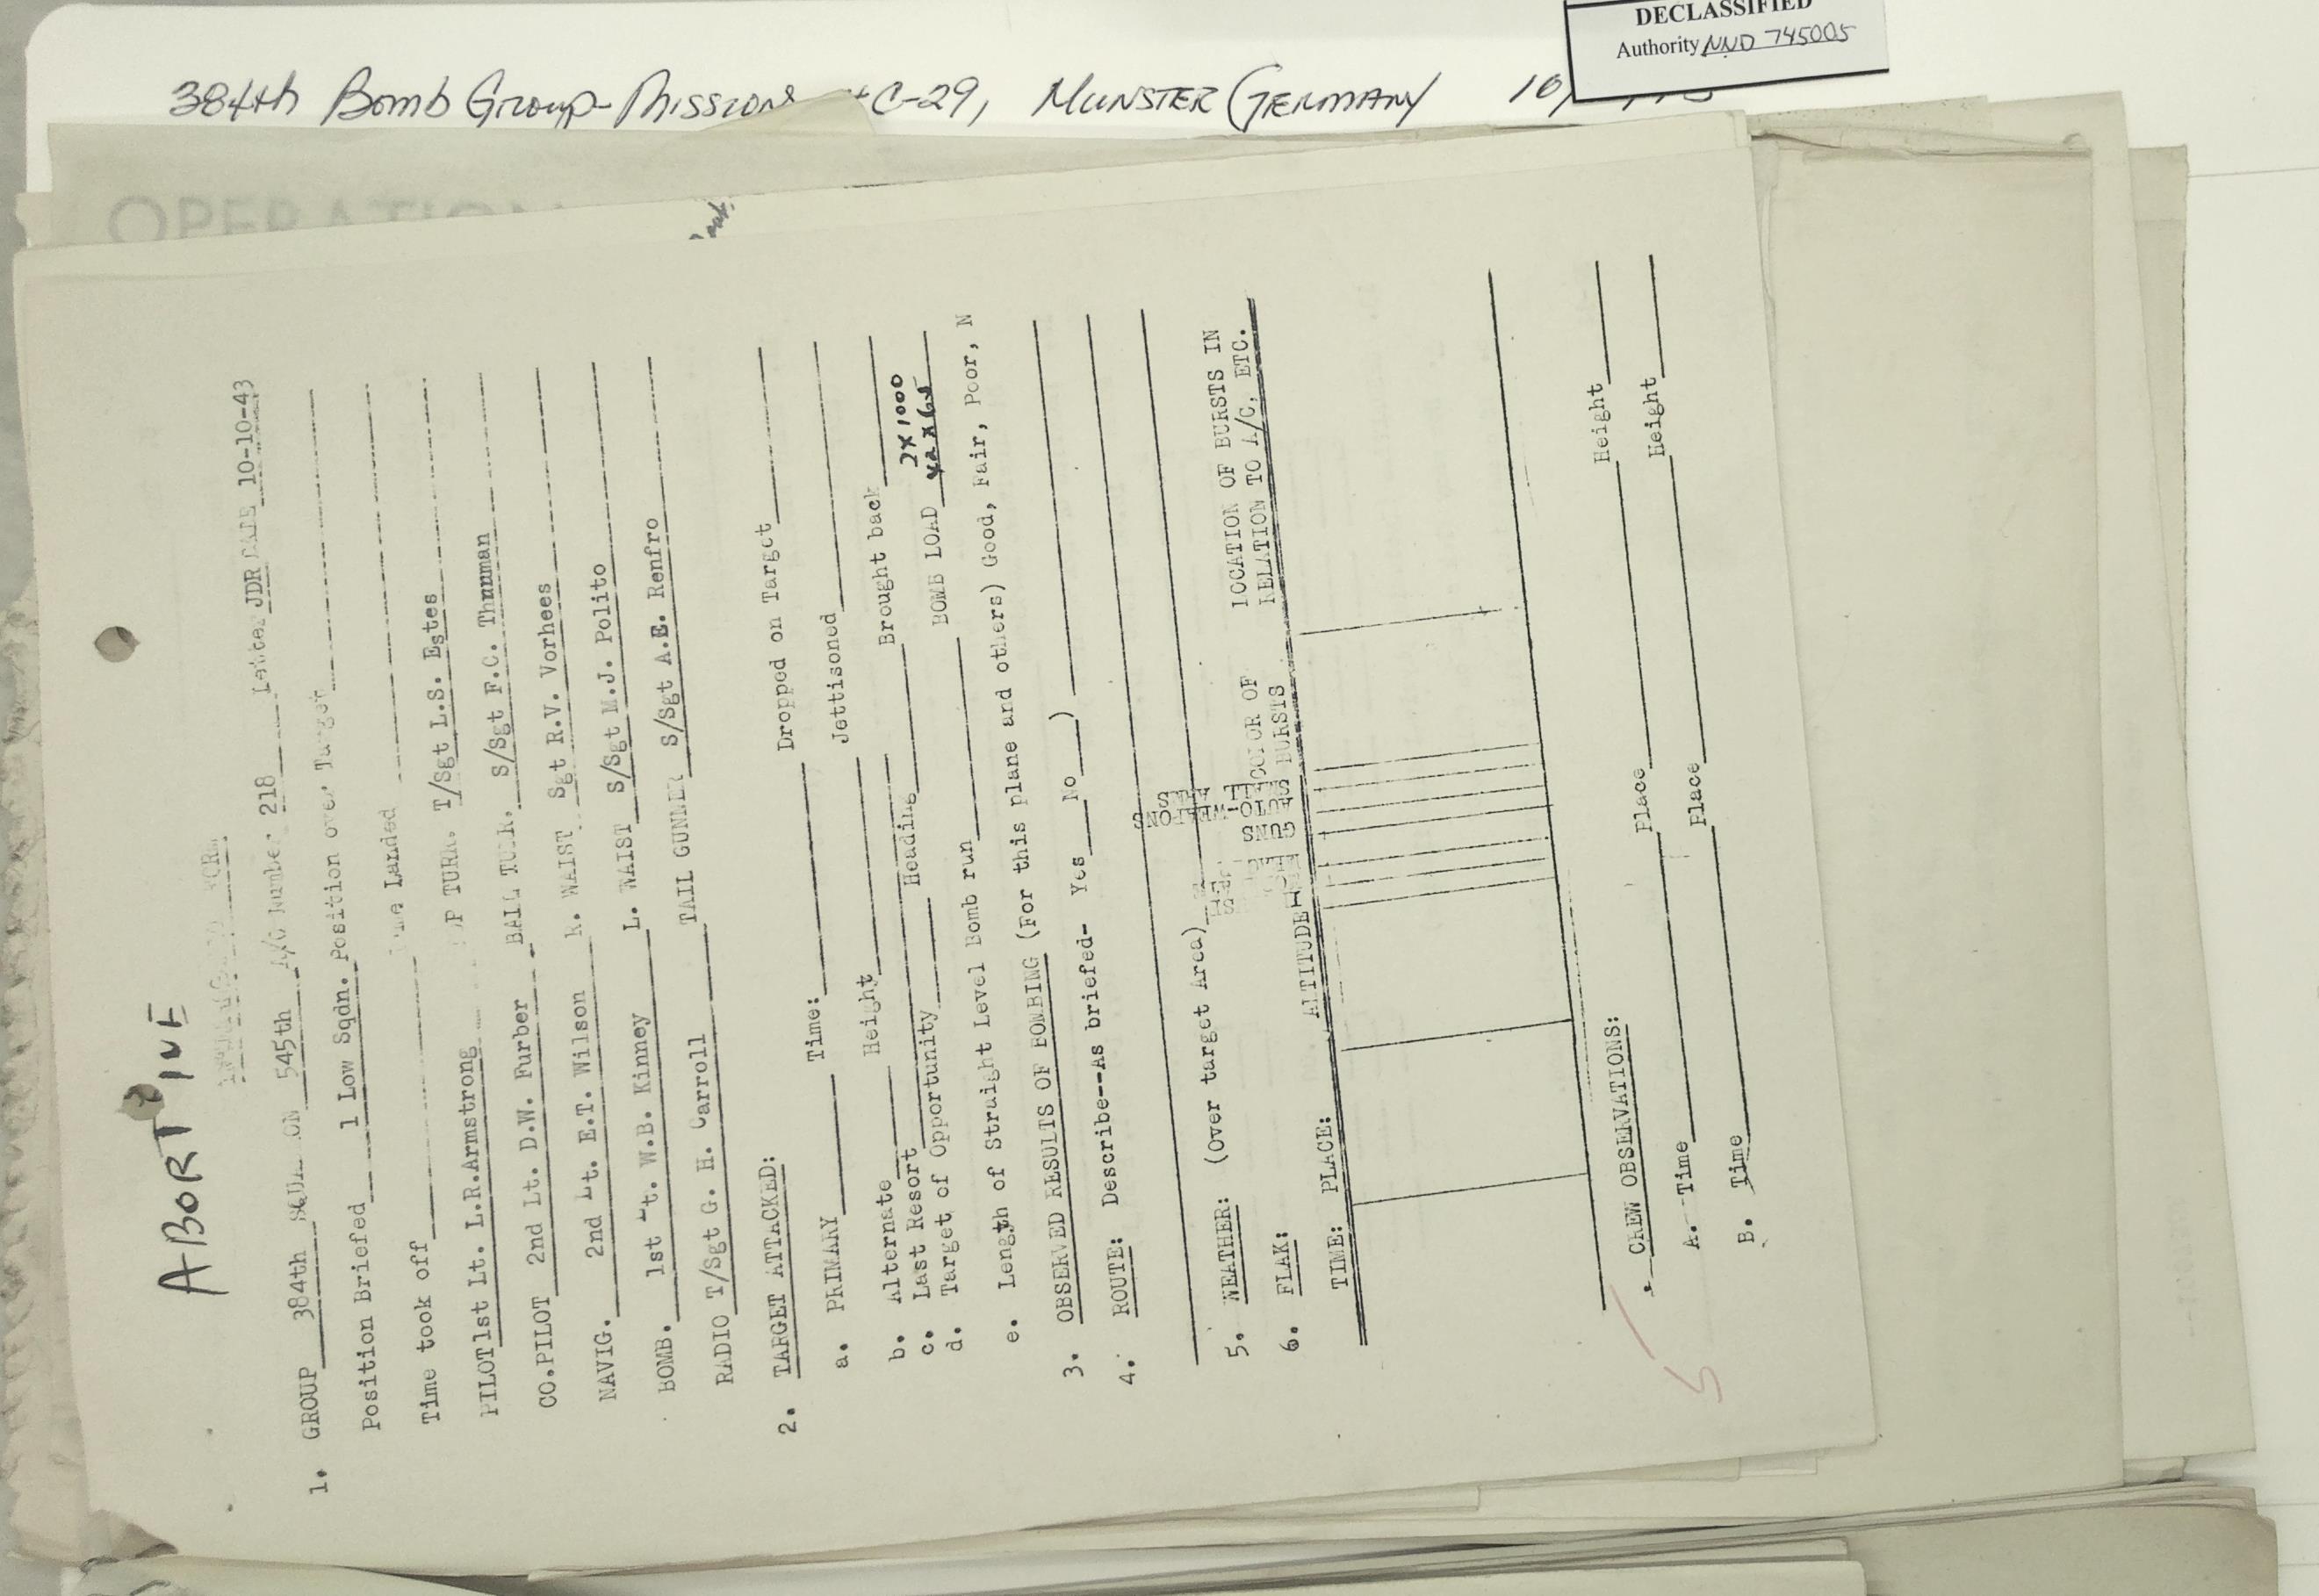 DECLASSIFIED
Authority NND 745005
384th Bomb Group - Mission C-29, MUNSTER GERMANY 10
OPERATION
ABORTIVE
1. GROUP 384th 545th A/C Number 218 Letter JDR DATE 10-10-43
Position Briefed 1 Low Sqdn. Position over Target
Time took off Landed
PILOT 1st Lt. L.R.Armstrong TURR. T/Sgt L.S. Estes
CO.PILOT 2nd Lt. D.W. Furber BALL TURR. S/Sgt F.C. Thurman
NAVIG. 2nd Lt. E.T. Wilson R. WAIST Sgt R.V. Vorhees
BOMB. 1st Lt. W.B. Kinney L. WAIST S/Sgt M.J. Polito
RADIO T/Sgt G. H. Carroll TAIL GUNNER S/Sgt A.E. Renfro
2. TARGET ATTACKED:
a. PRIMARY Time: Dropped on Target
b. Alternate Height Jettisoned
c. Last Resort Heading Brought back
d. Target of Opportunity BOMB LOAD 2X1000
e. Length of Straight Level Bomb run
3. OBSERVED RESULTS OF BOMBING (For this plane and others) Good, Fair, Poor, N
4. ROUTE: Describe--As briefed- Yes No )
5. WEATHER: (Over target Area)
6. FLAK:
TIME: PLACE: ALTITUDE GUNS COLOR OF BURSTS LOCATION OF BURSTS IN RELATION TO A/C, ETC.
CREW OBSERVATIONS:
A. Time Place Height
B. Time Place Height
5